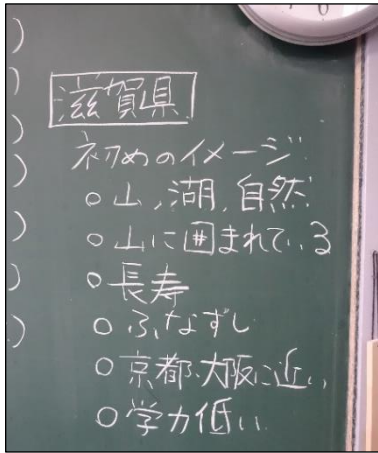 滋賀県
初めのイメージ
○山,湖,自然
○山に囲まれている
○長寿
○ふなずし
○京都・大阪に近い
○学力低い